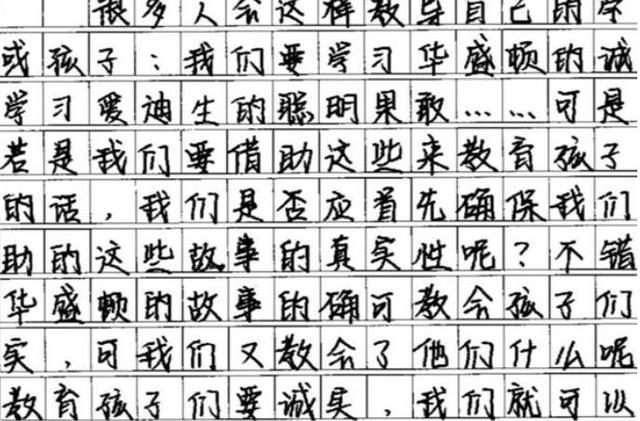 很多人会这样教导自己的学
或孩子：我们要学习华盛顿的诚
学习爱迪生的聪明果敢……可是
若是我们要借助这些来教育孩子
的话，我们是否应首先确保我们
助的这些故事的真实性呢？不错
华盛顿的故事的确可教会孩子们
实，可我们又教会了他们什么呢
教育孩子们要诚实，我们就可以